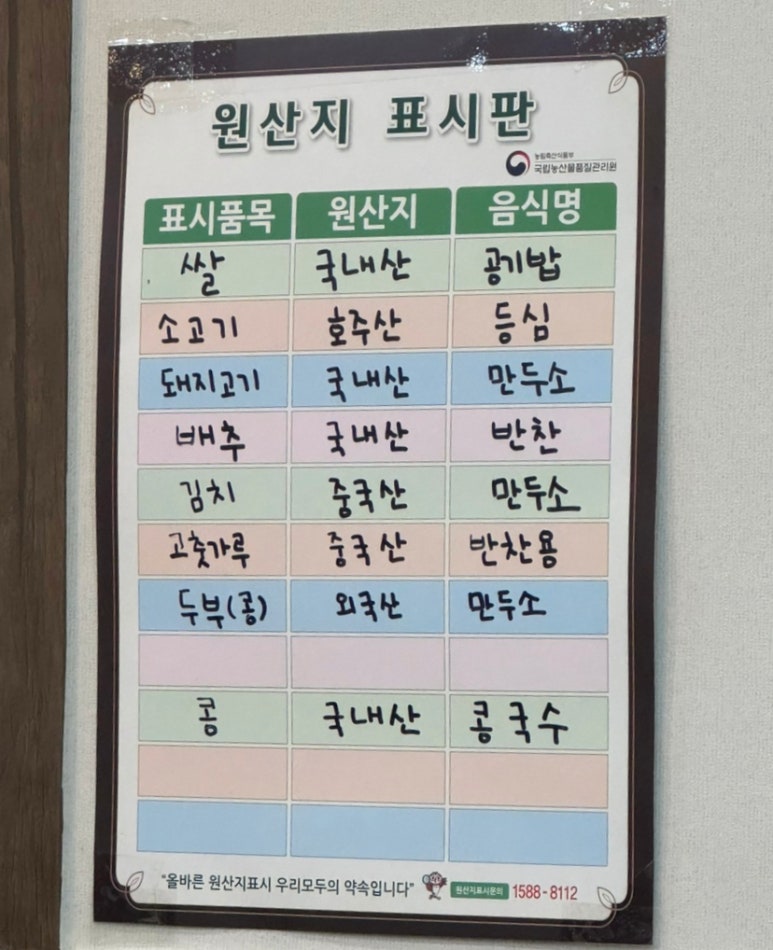 원산지 표시판
농림축산식품부
국립농산물품질관리원
표시품목 원산지 음식명
쌀 국내산 공기밥
소고기 호주산 등심
돼지고기 국내산 만두소
배추 국내산 반찬
김치 중국산 만두소
고춧가루 중국산 반찬용
두부(콩) 외국산 만두소
콩 국내산 콩국수
"올바른 원산지표시 우리모두의 약속입니다" 원산지표시문의 1588-8112